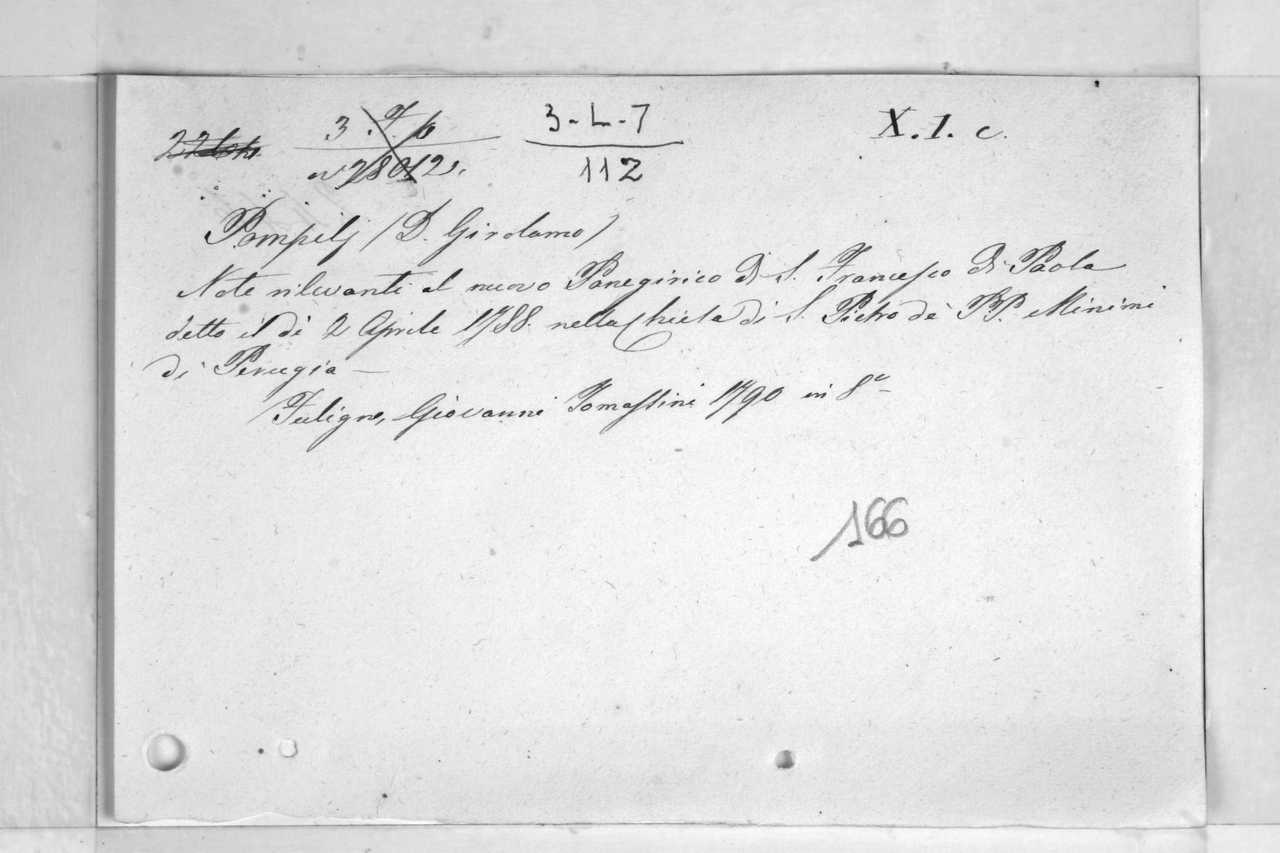 3-L-7 X.1.c.
112
Pompilj (D. Girolamo)
Note rilevanti al nuovo Panegirico di S. Francesco di Paola
detto il dì 2 Aprile 1788. nella Chiesa di S. Pietro de PP. Minimi
di Perugia —
Fuligno, Giovanni Tomassini 1790 in 8°
166